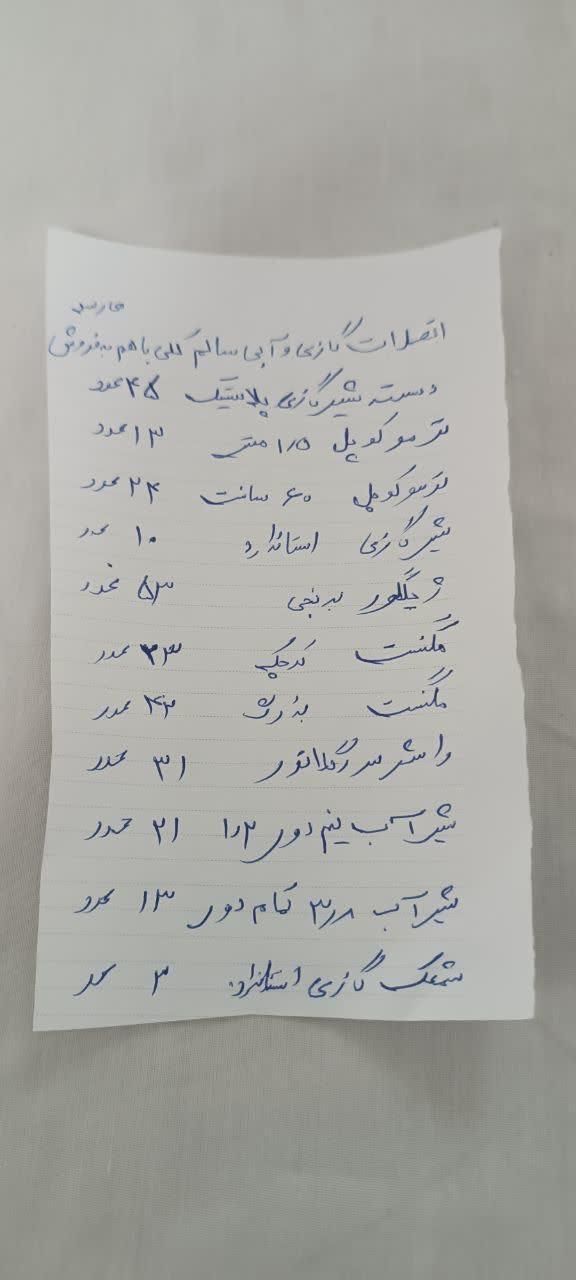 اتصالات گازی و آبی سالم کلی باهم به فروش
میرسد
دسته شیر گازی پلاستیک ۴۵ عدد
ترموکوپل ۱/۵ متر ۱۳ عدد
ترموکوپل ۶۰ سانت ۲۴ عدد
شیر گازی استاندارد ۱۰ عدد
ژیگلور برنجی ۵۳ عدد
مگنست کوچک ۳۳ عدد
مگنست بزرگ ۴۲ عدد
واشر سر رگلاتور ۳۱ عدد
شیر آب نیم دور ۱/۲ ۲۱ عدد
شیر آب ۳/۸ تمام دور ۱۳ عدد
شمعک گازی استاندارد ۳ عدد